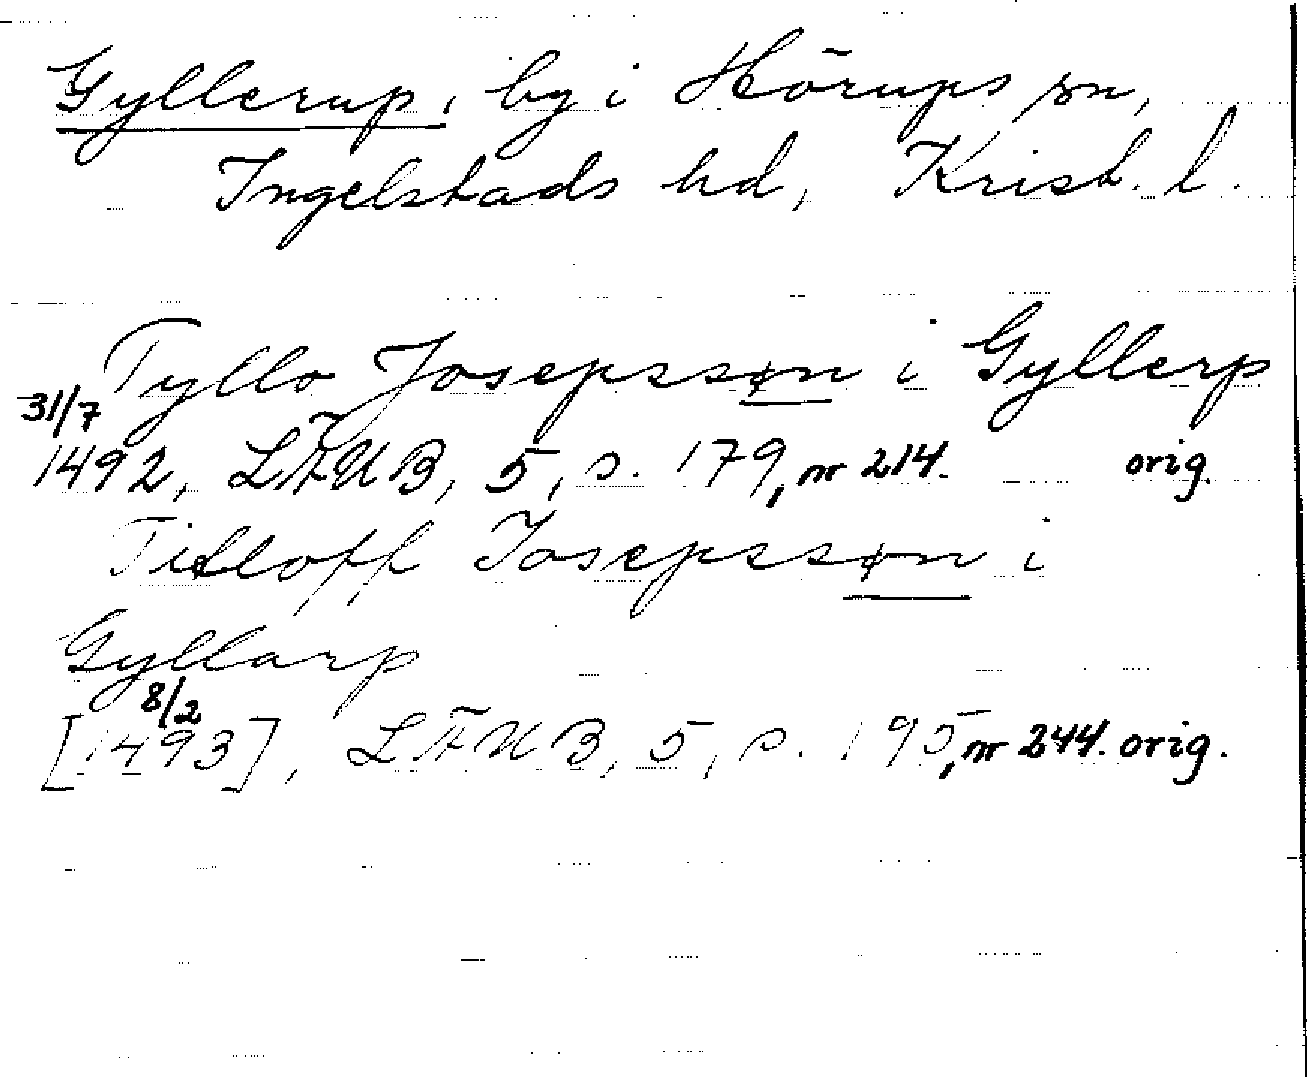 Gyllerup, by i Hörups sn,
Ingelstads hd, Krist. l.
Tyllo Josepssøn i Gyllerp
31/7
1492, LÄUB, 5, s. 179, nr 214. orig.
Titloff Josepssøn i
Gyllarp
8/2
[1493], LÄUB, 5, s. 195, nr 244. orig.